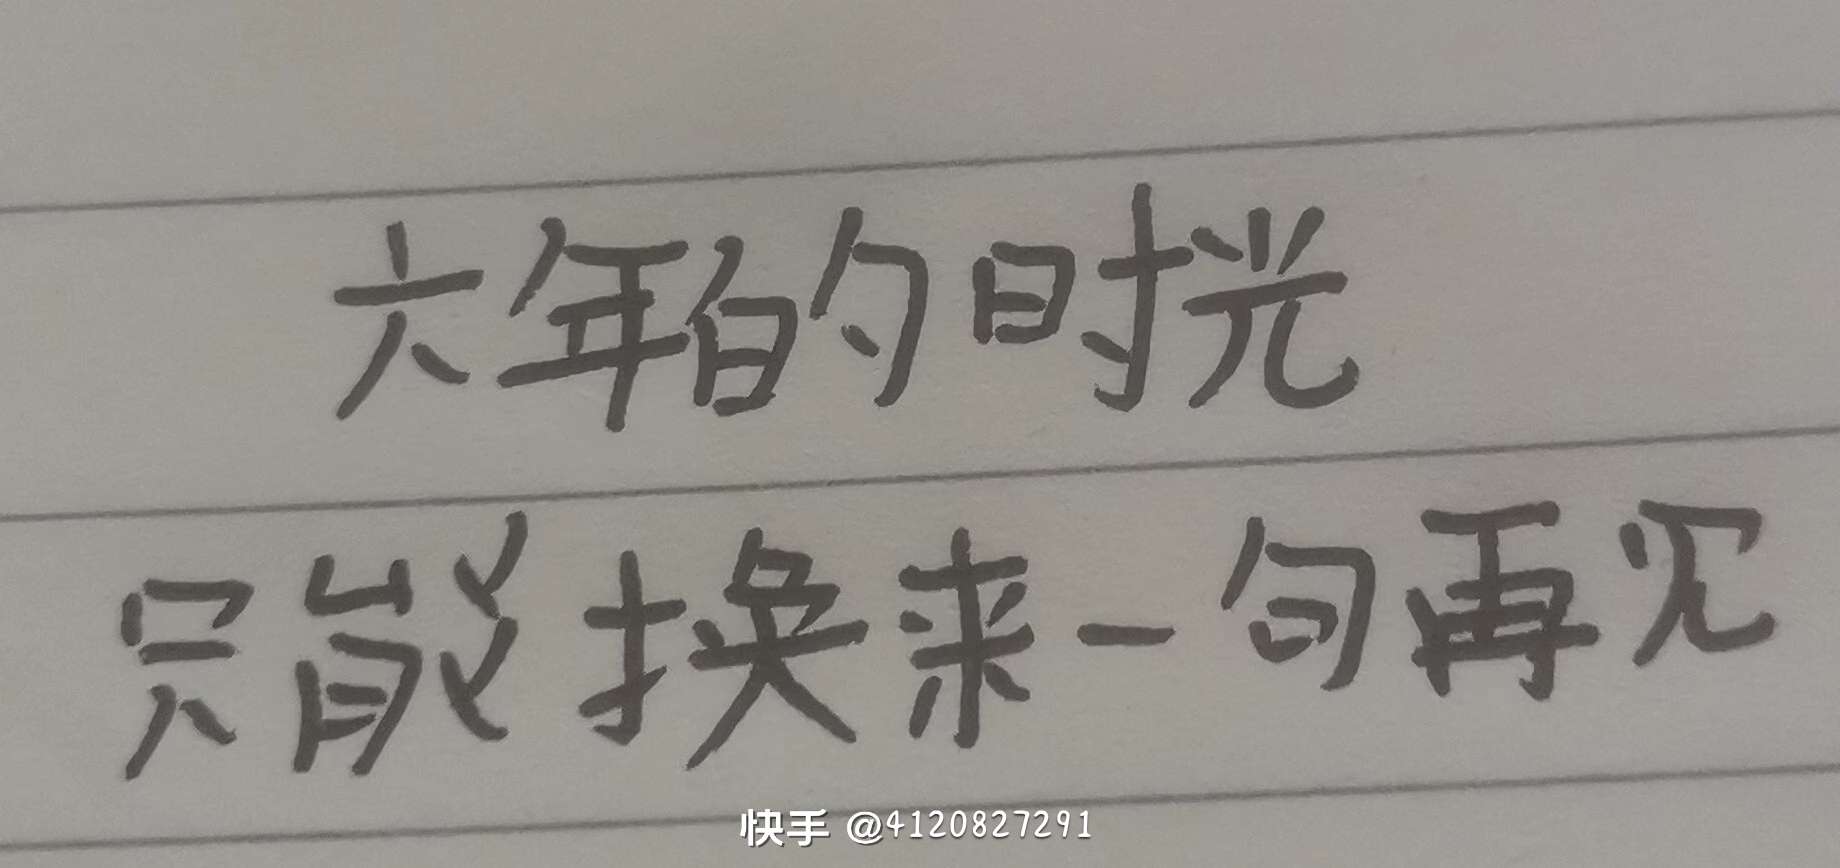 六年的时光
只能换来一句再见
快手 @4120827291